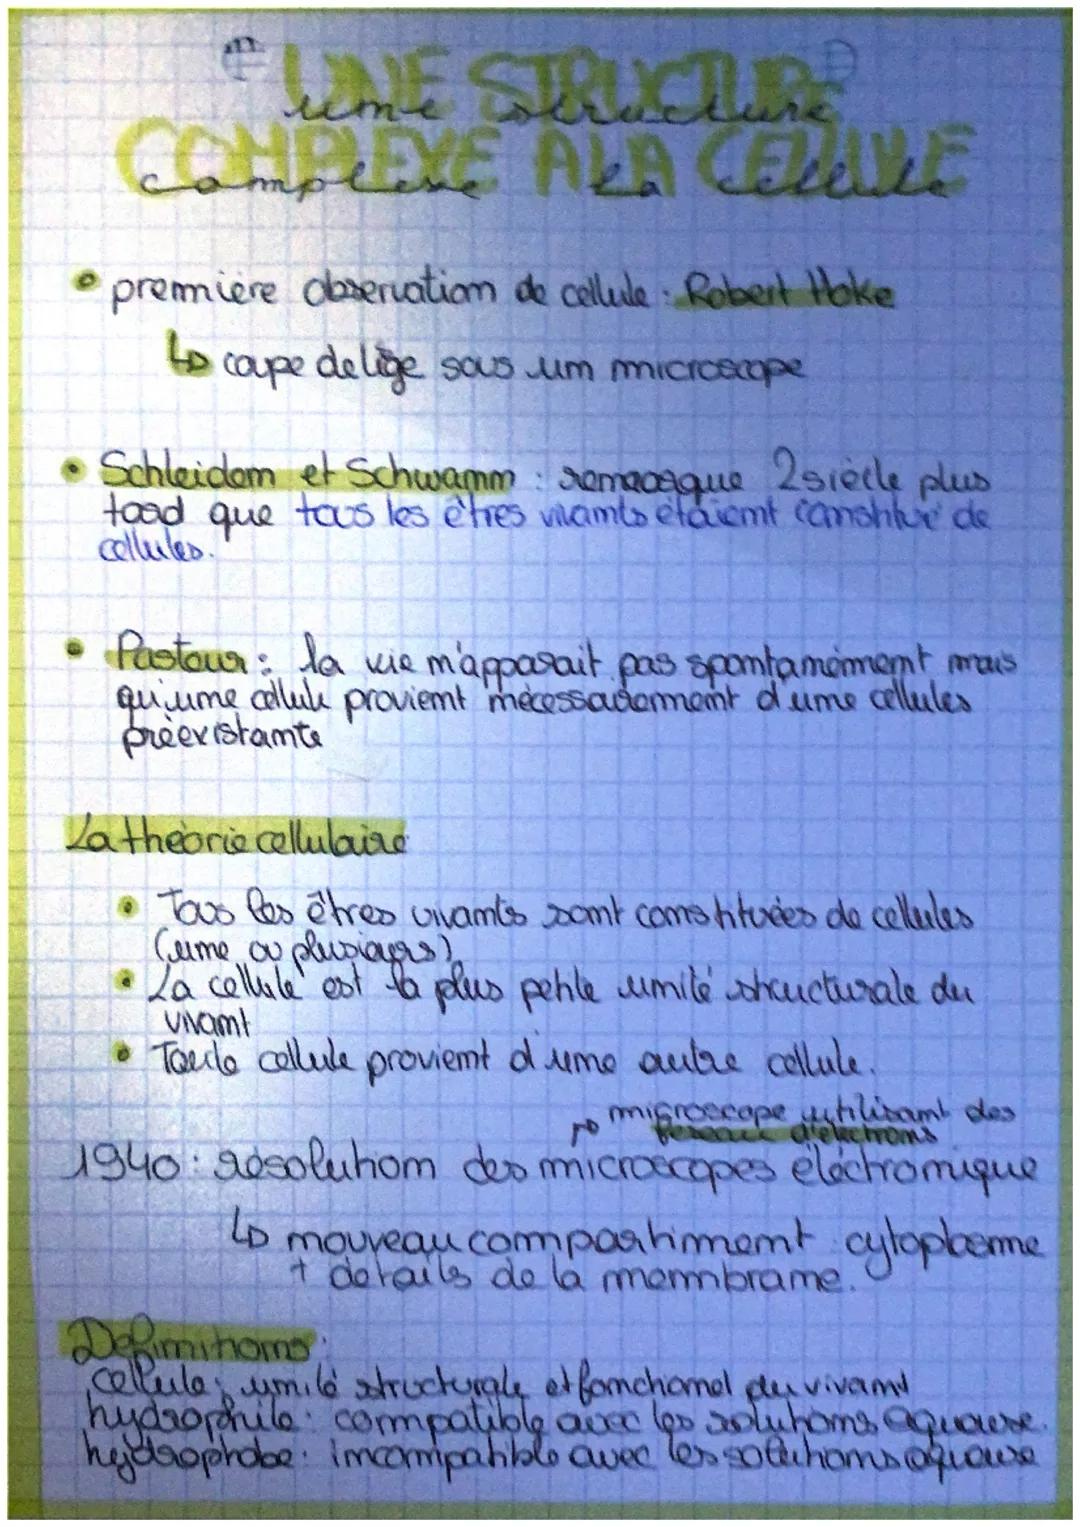 UNE STRUCTURE
une structure
COMPLEXE A LA CELLULE
complexe la cellule
• première observation de cellule : Robert Hoke
↳ coupe de liège sous un microscope
• Schleiden et Schwann : remarque 2 siècle plus
tard que tous les êtres vivants étaient constitué de
cellules.
• Pasteur : la vie n'apparait pas spontanément mais
qu'une cellule provient nécessairement d'une cellules
préexistante
La théorie cellulaire
• Tous les êtres vivants sont constituées de cellules
(une ou plusieurs)
• La cellule est la plus petite unité structurale du
vivant
• Toute cellule provient d'une autre cellule.
microscope utilisant des
faisceau d'électrons
1940 : résolution des microscopes électronique
↳ nouveau compartiment cytoplasme
+ détails de la membrane.
Définitions :
cellule : unité structurale et fonctionnel du vivant
hydrophile : compatible avec les solutions aqueuse.
hydrophobe : incompatible avec les solutions aqueuse